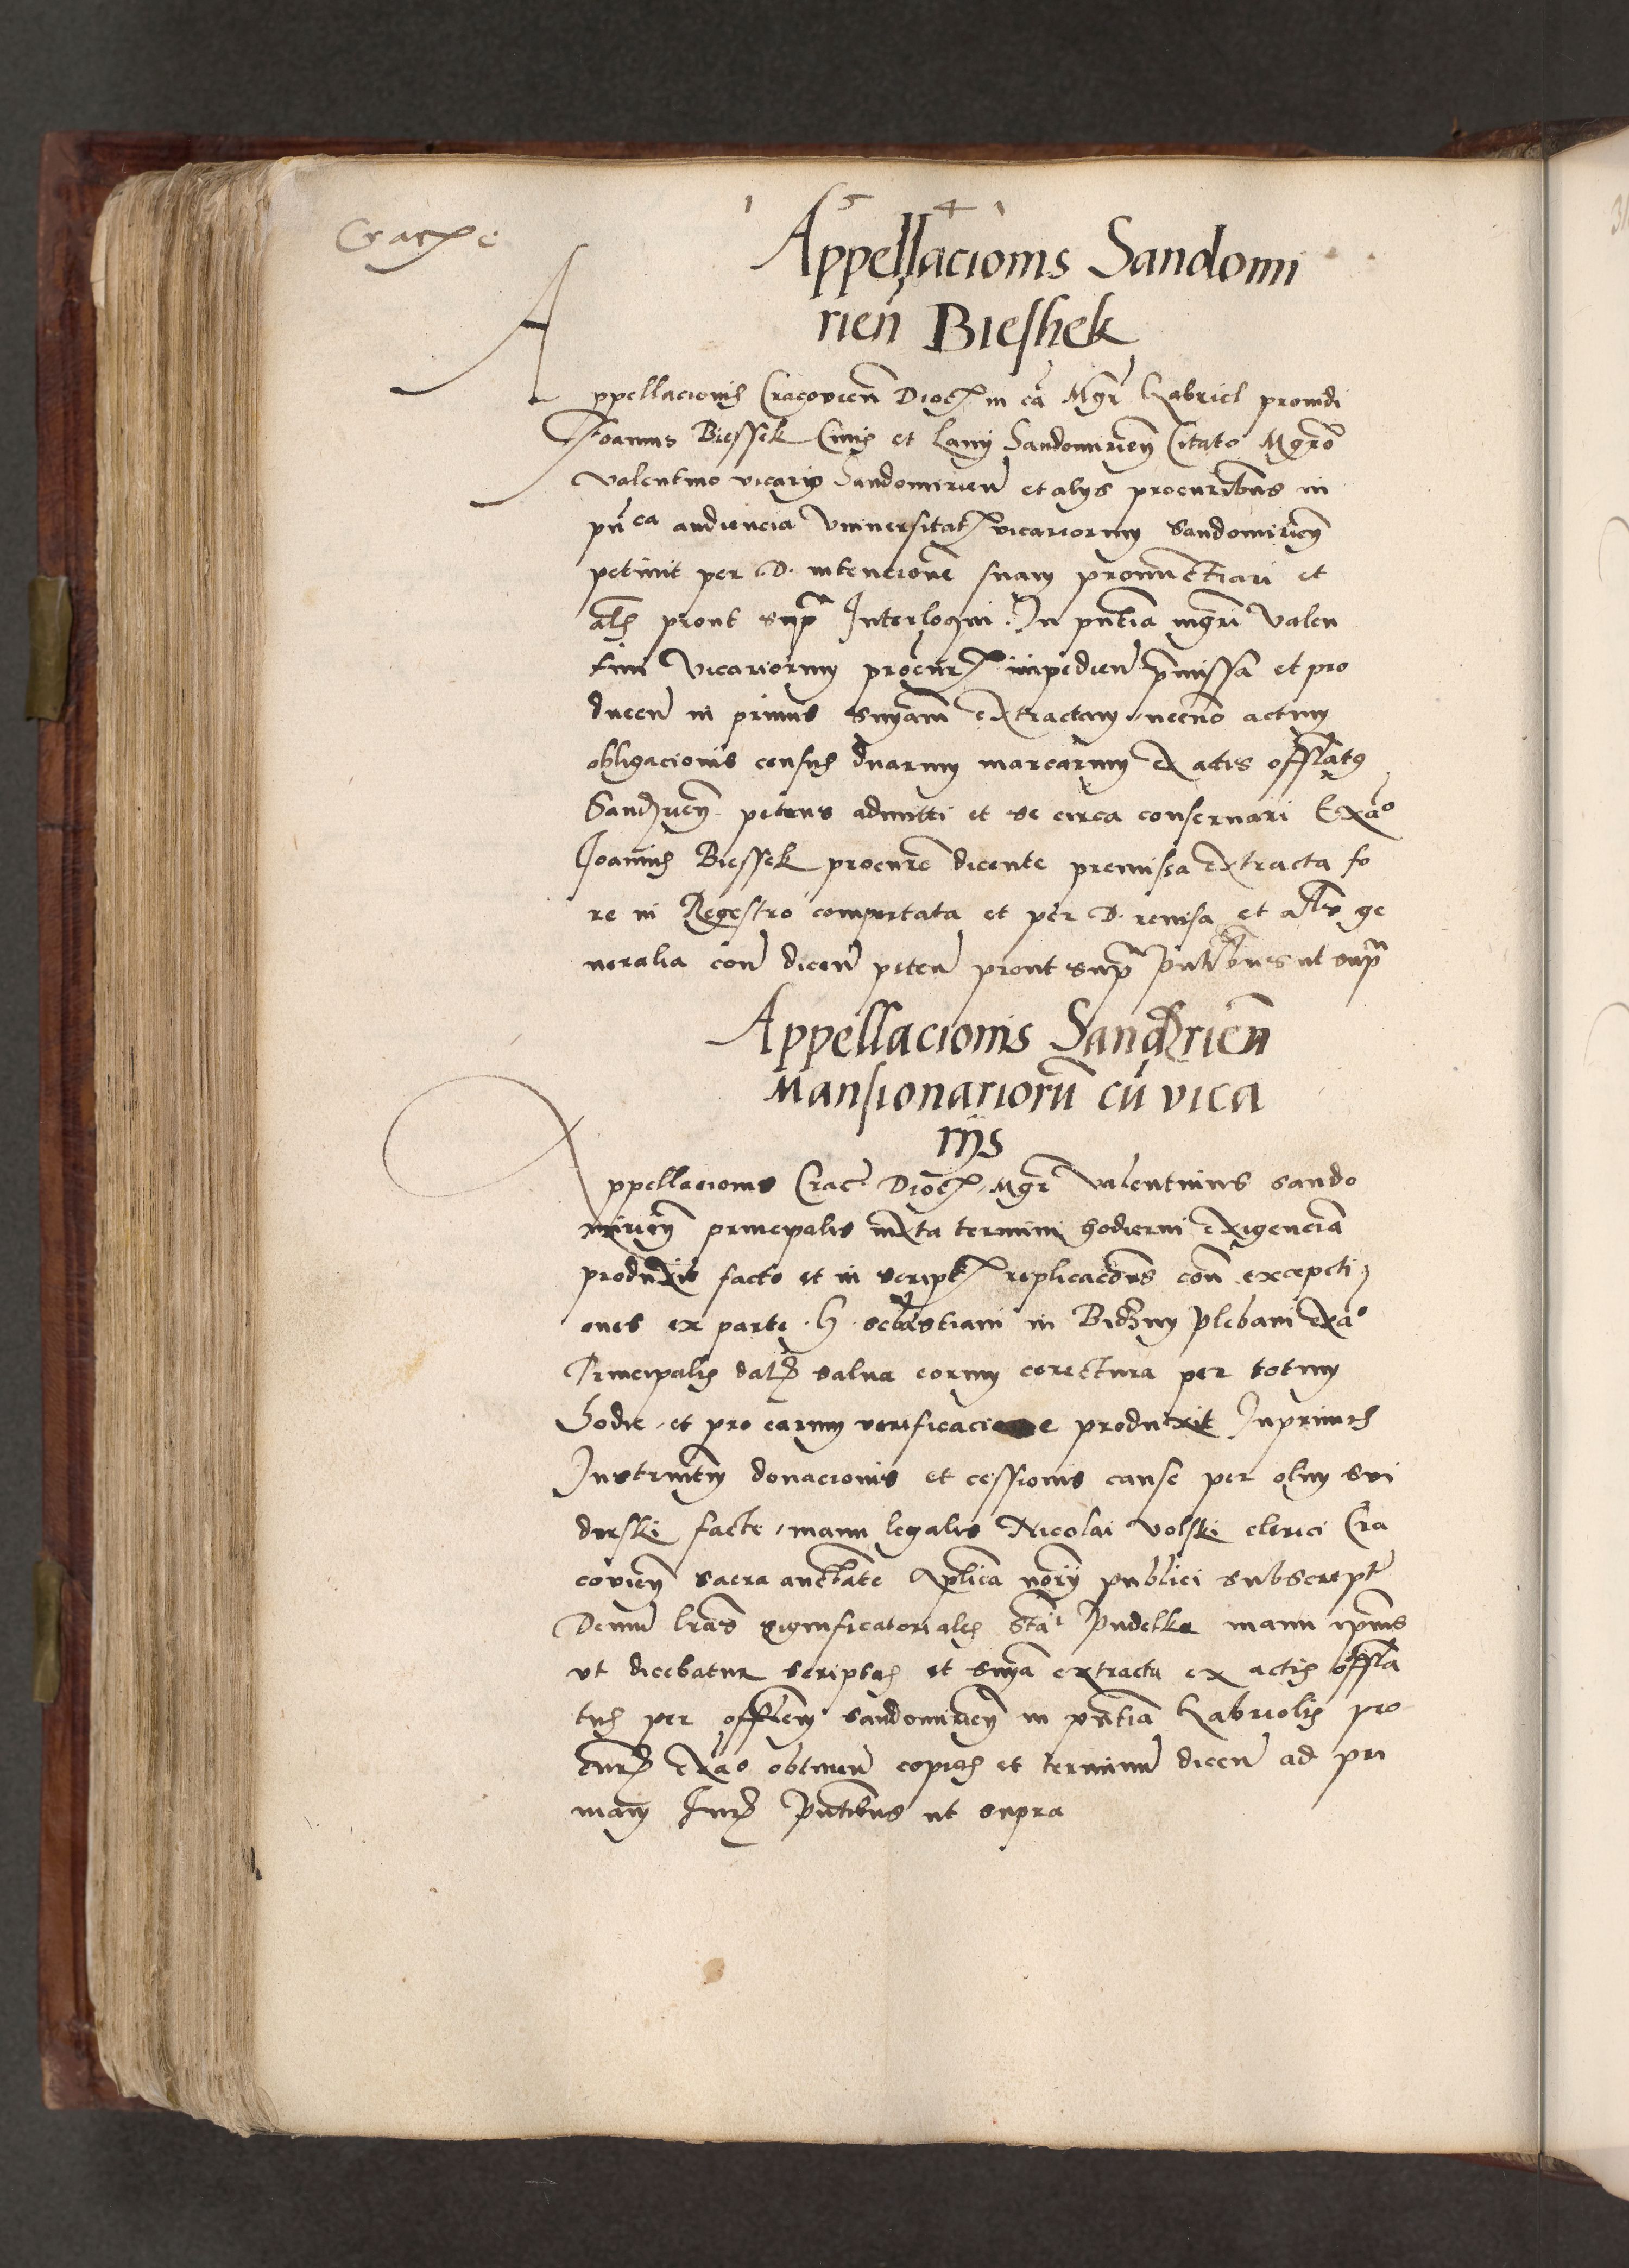 1 5 4 1
Cracxe
Appellacionis Sandomi
rien Bieshek
Appellacionis Cracovien Dioc in ca Mgr Gabriel providi
Joannis Biessek Civis et Lanij Sandomirien Citato Mgro
valentino vicario Sandomirien et alys procuribus in
pnca audiencia Universitat vicariorum Sandomirien
petivit per D. intencionem suam pronunctiari et
als prout supra Interloqui. In pntia mgri Valen
tini Vicariorum procur impedien pmissa et pro
ducen in primis extractum necno actum
obligacionis census duarum marcarum ex actis offlatus
Sandrien petens admitti et se circa conservari Exao
Joannis Biessek procure dicente premissa extracta fo
re in Regestro comportata et per D. revisa et ge
neralia con dicen peten prout supra pntibus ut supra
Appellacionis Sandrien
Mansionarioru cu vica
rijs
Appellacionis Crac Dioc Mgr valentinus sando
mirien principalis iuxta termini hodierni exigencia
produxit facto et in script replicacones con excepcti
ones ex parte h sebastiani in plebani exao
Principalis dat salva eorum corectura per totum
hodie et pro earum verificacione produxit Inprimis
Instrumtum donacionis et cessionis cause per olim svi
derski facte manu legalis Nicolai volski clerici Cra
covien sacra auctbate Aplica norij publici subscrept
Demum lras significatoriales Pudelka manu ipsius
ut dicebatur scriptas et extracta ex actis offla
tus per officiem Sandomirien in pntia Gabrielis pro
cur exao obtinuen copias et terminum dicen ad pri
mam Jur Pntibus ut supra